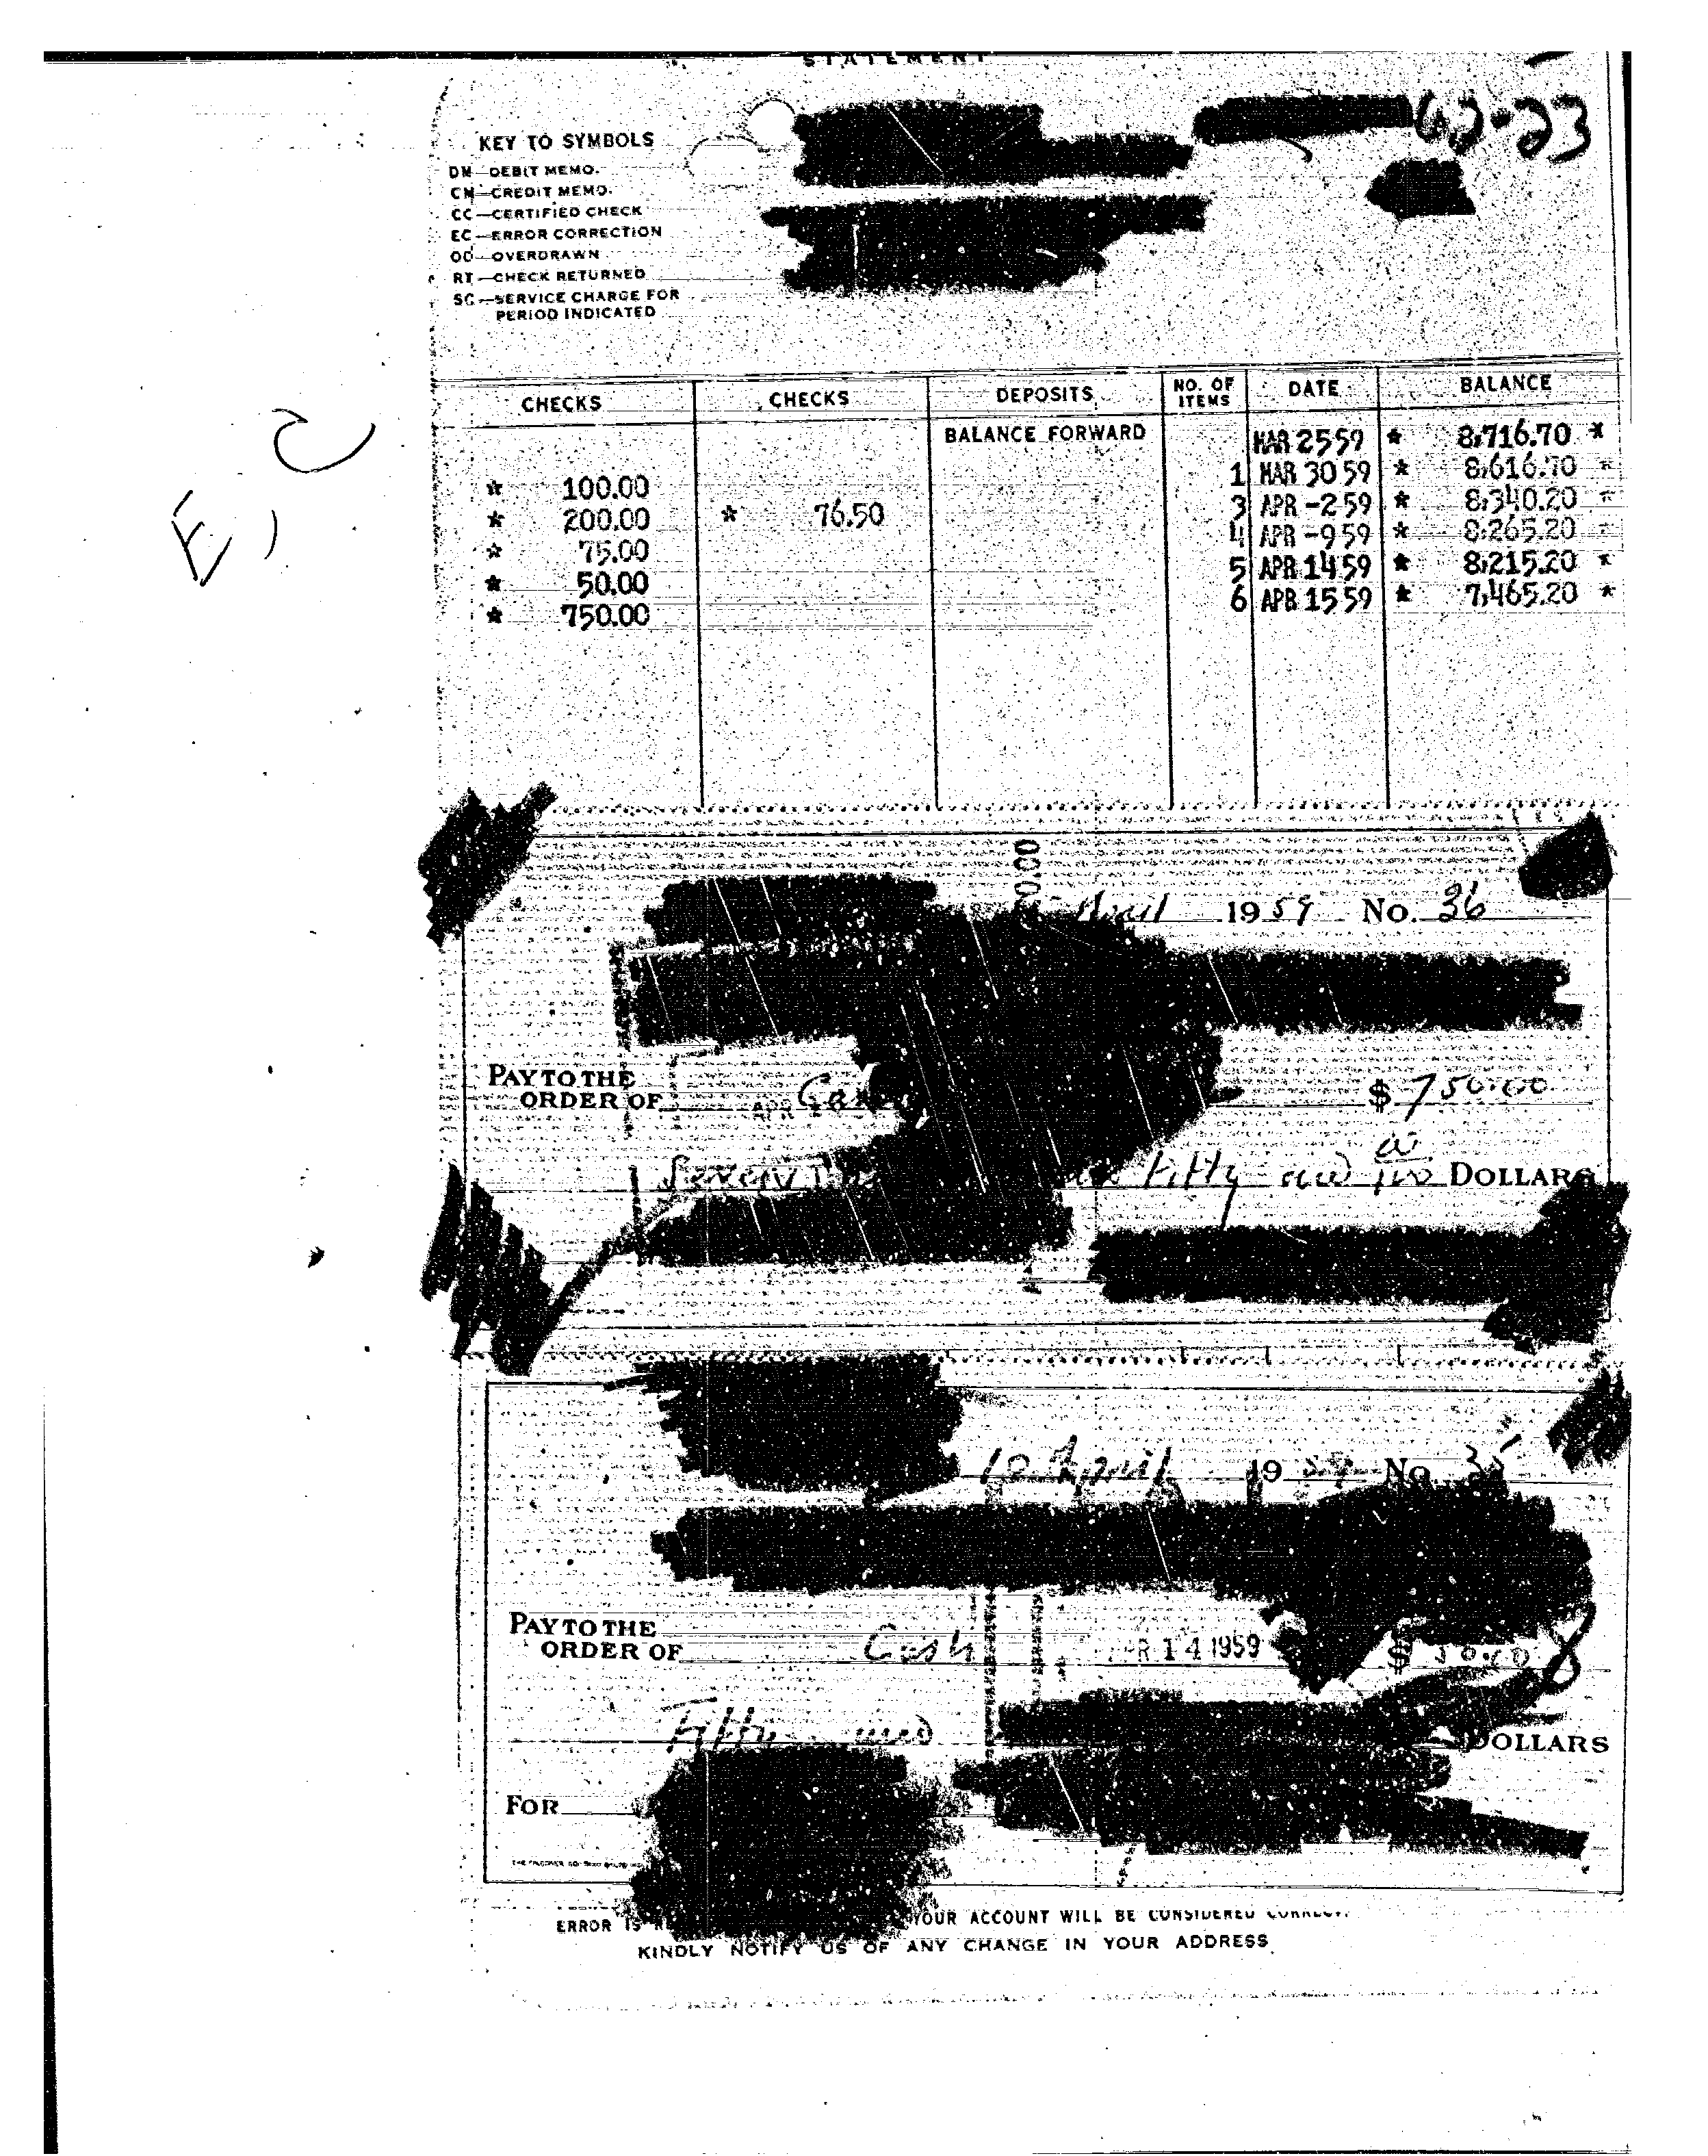 STATEMENT
62-23
KEY TO SYMBOLS
DM—DEBIT MEMO.
CM—CREDIT MEMO.
CC—CERTIFIED CHECK
EC—ERROR CORRECTION
OD—OVERDRAWN
RT—CHECK RETURNED
SC—SERVICE CHARGE FOR
PERIOD INDICATED
CHECKS CHECKS DEPOSITS NO. OF ITEMS DATE BALANCE
BALANCE FORWARD MAR 25 59 * 8,716.70 *
* 100.00 1 MAR 30 59 * 8,616.70 *
* 200.00 * 76.50 3 APR -2 59 * 8,340.20 *
* 75.00 4 APR -9 59 * 8,265.20 *
* 50.00 5 APR 14 59 * 8,215.20 *
* 750.00 6 APR 15 59 * 7,465.20 *
April 1959 No. 36
PAY TO THE
ORDER OF $ 750.00
Seven Fifty and DOLLARS
10 April 1959 No. 35
PAY TO THE
ORDER OF Cash APR 14 1959 $ 50.00
Fifty and DOLLARS
FOR
ERROR IS YOUR ACCOUNT WILL BE CONSIDERED CORRECT.
KINDLY NOTIFY US OF ANY CHANGE IN YOUR ADDRESS